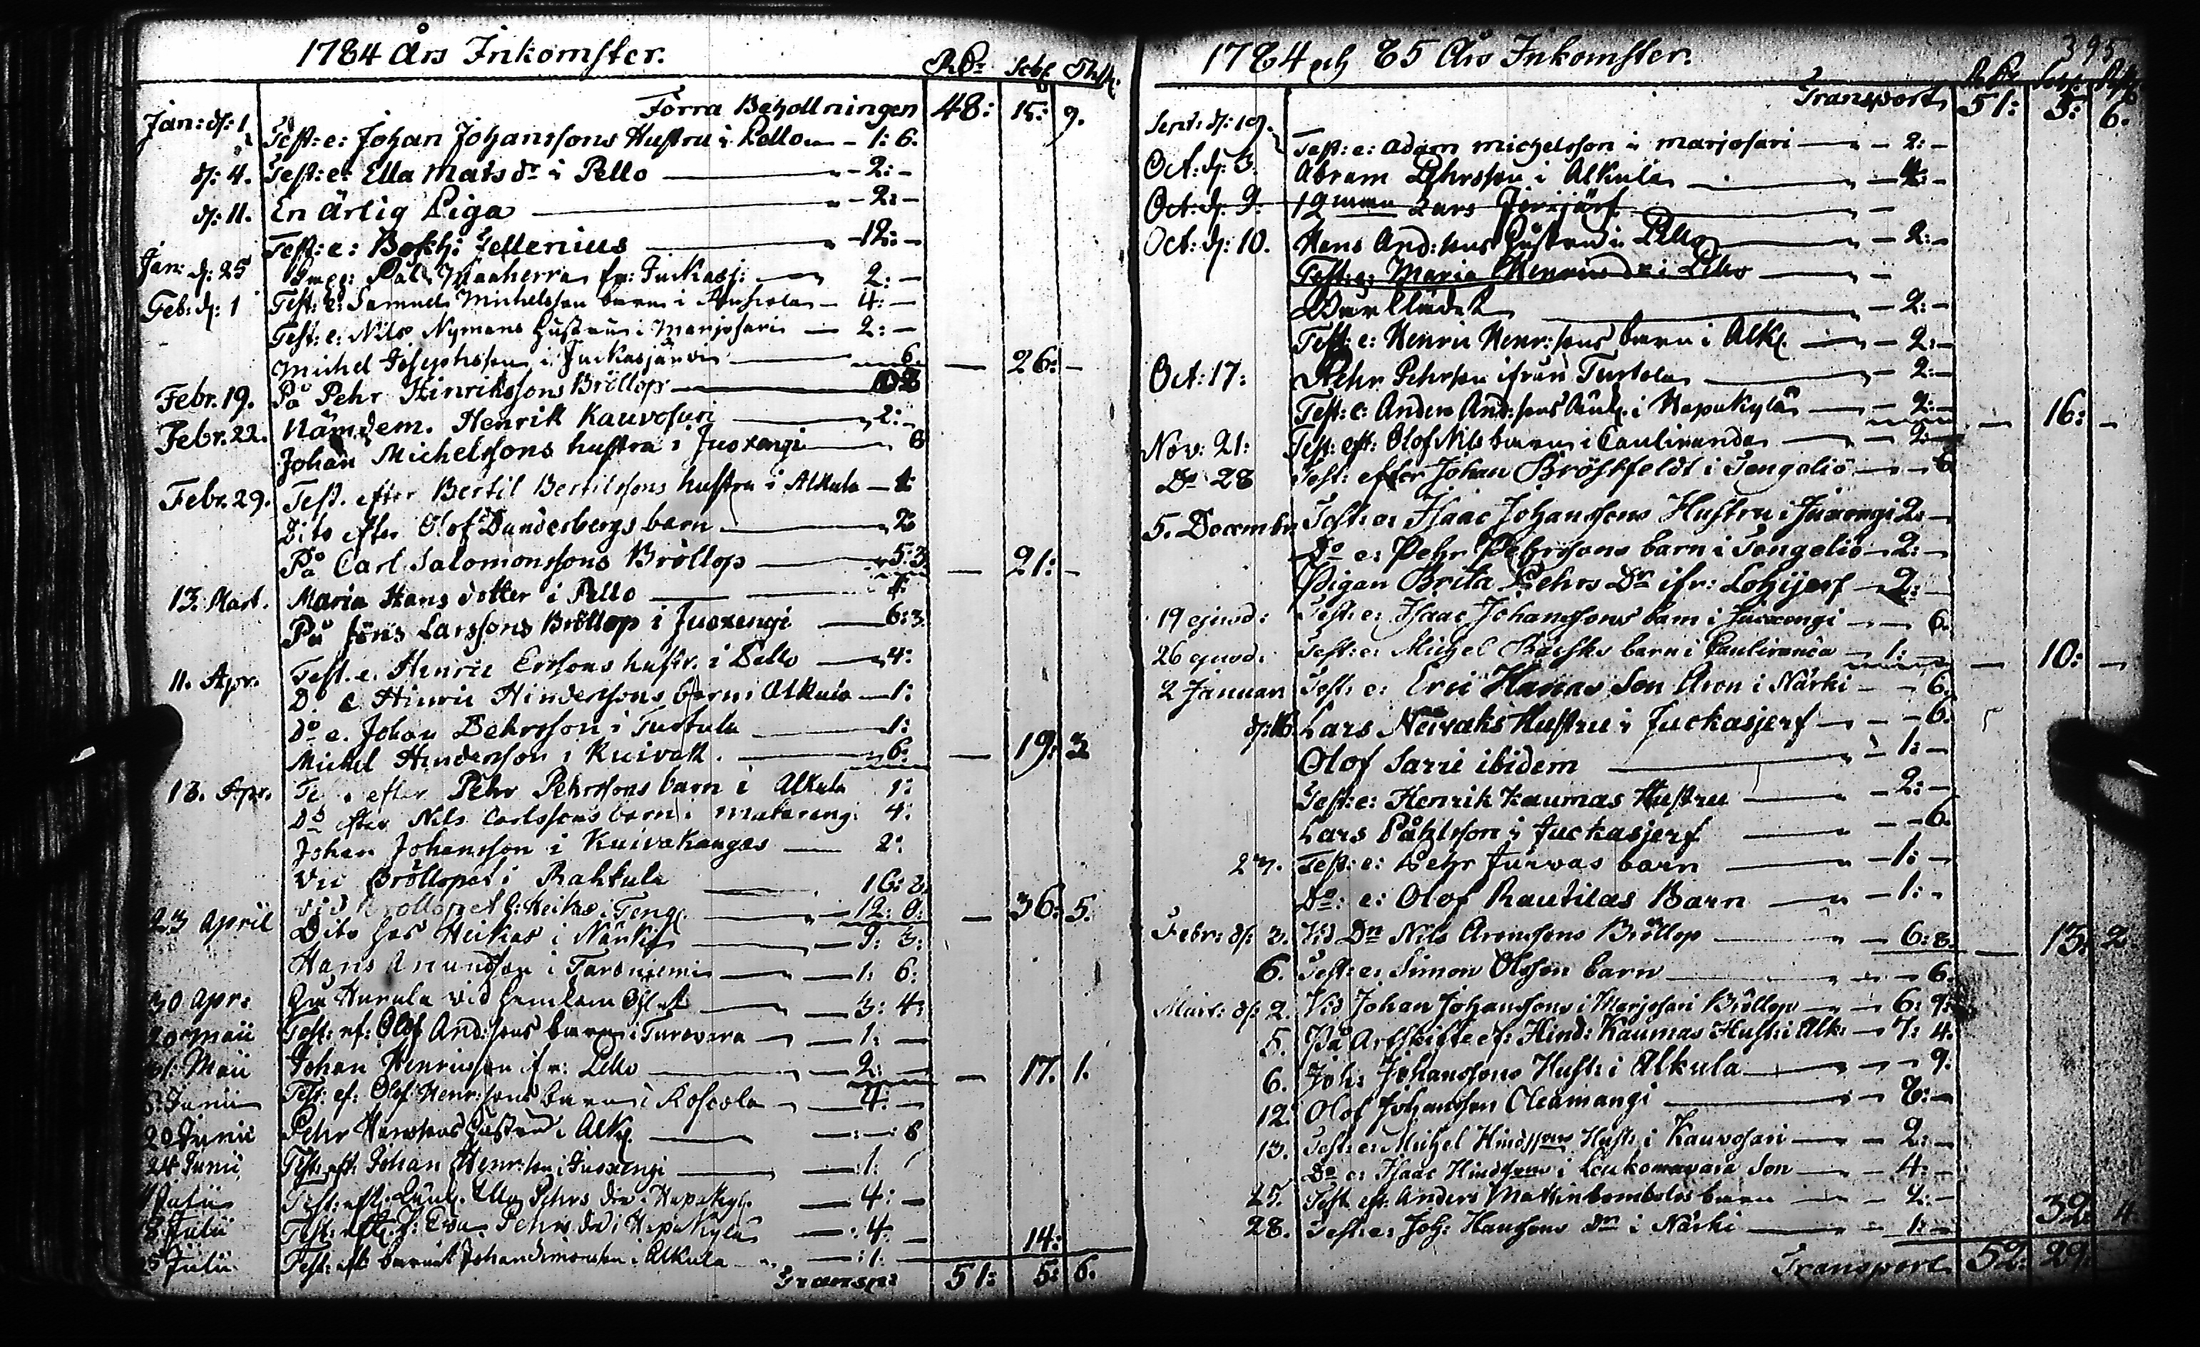 1784 Års Inkomster.
RDr Sch: Rst:
Förra Behollningen 48: 15: 9.
Jan: d: 1 Test: e: Johan Johanssons Hustru i Pello — 1: 6.
d: 4. Test: e: Ella Mats dr i Pello — 2: –
d: 11. En Ärlig Piga — 2: –
Test: e: Bokh: Tellenius — 12: –
Jan: d: 25 Pål Maaherra fr: Juckasj: — 2: –
Feb: d: 1 Test: e: Samuel Michelsson barn i — 4: –
Test: e: Nils Nymans hustru i Marjosari — 2: –
Michel Josephsson i Juckasjärvi — 6. — 26: –
Febr. 19. På Pehr Hinrikssons Bröllop
Febr. 22. Nämdem. Henrik Kauvosari — 2: –
Johan Michelssons hustru i Juoxengi — 6
Febr. 29. Test. efter Bertil Bertilssons hustru i Alkula — 4:
Dito efter Olof Dunderbergs barn — 2:
På Carl Salomonssons Bröllop — 5: 3. — 21: –
13. Mart. Maria Hans dotter i Pello — 4:
På Jöns Larssons Bröllop i Juoxengi — 6: 3.
11. Apr. Test. e. Henric Ersons hustr. i Pello — 4:
Do e Hinric Hinderssons barn i Alkula — 1:
do e. Johan Pehrsson i Turtula — 1:
Michel Hindersson i Kuivak. — 6: — 19: 3
18. Apr. efter Pehr Pehrssons barn i Alkula 1:
Do efter Nils Carlssons barn i matareng: 4:
Johan Johansson i Kuivakangas — 2:
Vid Bröllopet i Rahtula — 16: 8.
Vid Bröllopet h: Heikas i Teng: — 12: 0: — 36: 5.
23 April Dito hos Heikas i Närki — 9: 3:
Hans Anundson i Taronniemi — 1: 6:
30 Apr: — 3: 4:
20 Maii Test: ef: Olof And:sons barn i Turovara — 1: –
31. Maii Johan Henricsson fr: Pello — 2: — 17. 1.
Junii Test: ef: Olof Henr:sons barn i — 4: –
20 Junii Pehr hustru i Alk: — : 8
24 Junii Test: eft: Johan Henr:son i Juoxengi — 1:
Julii Test: eft: Ella Pehrs dr i Hapakylä — 4: –
Julii Test: eft: Eva Pehrs dr i Hapakylä — 4: – 14:
Julii Test: eft: barnet Alkula — 1: –
Transp: 51: 5: 6.
1784 och 85 Års Inkomster. 395
Transport 51: 5: 6.
Sept: d: 19. Test: e: Adam Michelsson i Marjosari — 2: –
Oct: d: 3. Abram Pehrsson i Alkula — 4: –
Oct: d: 9. Lars —
Oct: d: 10. Hans And:sons hustru i Pello — 2: –
Test: e: Maria Henrics dr i Pello —
Barklädet — 2: –
Test: e: Henric Henr:sons barn i Alk: — 2: –
Oct: 17: Pehr Pehrson ifrån Turtola — 2: –
Test: e: Anders And:sons i Hapakylä — 2: – — 16: –
Nov: 21: Test: eft: Olof Nils barn i Cauliranda — 2: –
Do 28 Test: efter Johan Bröstfeldt i Tengeliö — 6
5. Decembr Test: e: Isaac Johanssons Hustru i Juoxengi 2: –
Do e: Pehr Pehrssons barn i Tengeliö — 2: –
Pigan Brita Pehrs Dr ifr: Lohijerf — 2: –
19 ejusd: Test: e: Isaac Johanssons barn i Juoxengi — 6.
26 ejusd: Test: e: Michel barn i Cauliranda — 1: – — 10: –
2 Januari Test: e: Eric Hanas Son Aron i Närki — 6.
d: 16. Lars Neivaks Hustru i Juckasjerf — 6.
Olof Sarri ibidem — 1: –
Test: e: Henrik Kaumas Hustru — 2: –
Lars Påhlsson i Juckasjerf — 6.
27. Test: e: Pehr Jurvas barn — 1: –
Do: e: Olof Rautilas Barn — 1: –
Febr: d: 3. Vid Dn Nils Aronssons Bröllop — 6: 8. — 13: 2
6. Test: e: Simon Olsson barn — 6.
Mart: d: 2. Vid Johan Johanssons i Marjosari Bröllop — 6: 9.
5. På Arfskifte ef: Hind: Kaumas Hust: i Alk: — 7: 4.
6. Joh: Johanssons Hust: i Alkula — 9.
12. Olof Johansson Aleamangi — 6: –
13. Test: e: Michel Hindssons Hust: i Kauvosari — 2: –
Do e: Isaac Hindssons i Leukomavaara Son — 4: –
25. Test eft: Anders barn — 2: –
28. Test: e: Joh: Hanssons dr i Närki — 1: – 32: 4.
Transport 52: 29: